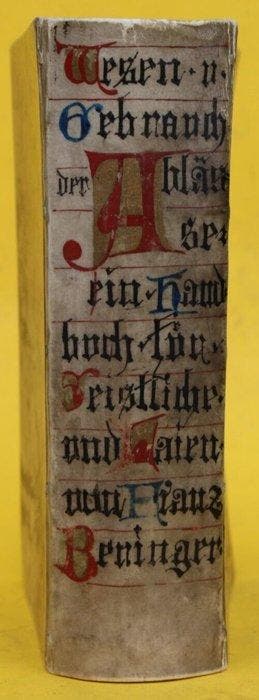 Wesen · u ·
Gebrauch
der Abläs
se ·
ein · Hand
buch · für ·
Geistliche ·
und Laien ·
von Franz
Beringer ·